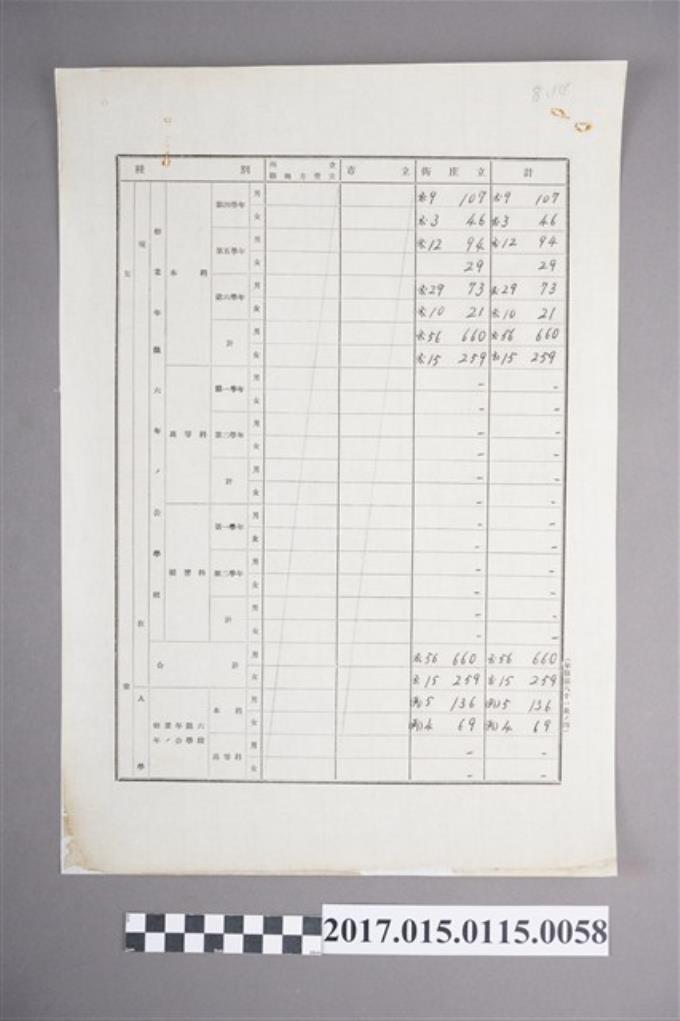 種 別 市 立 街 庄 立 計
第四學年 男 9 107 9 107
女 3 46 3 46
第五學年 男 12 94 12 94
女 29 29
本 科
第六學年 男 29 73 29 73
女 10 21 10 21
計 男 56 660 56 660
女 15 259 15 259
修業年限六年ノ公學校
高等科 第一學年 男 - -
女 - -
第二學年 男 - -
女 - -
計 男 - -
女 - -
補習科 第一學年 男 - -
女 - -
第二學年 男 - -
女 - -
計 男 - -
女 - -
合 計 男 56 660 56 660
女 15 259 15 259
修業年限六年ノ公學校 本 科 男 5 136 5 136
女 4 69 4 69
高等科 男 - -
女 - -
現 在
入 學
2017.015.0115.0058